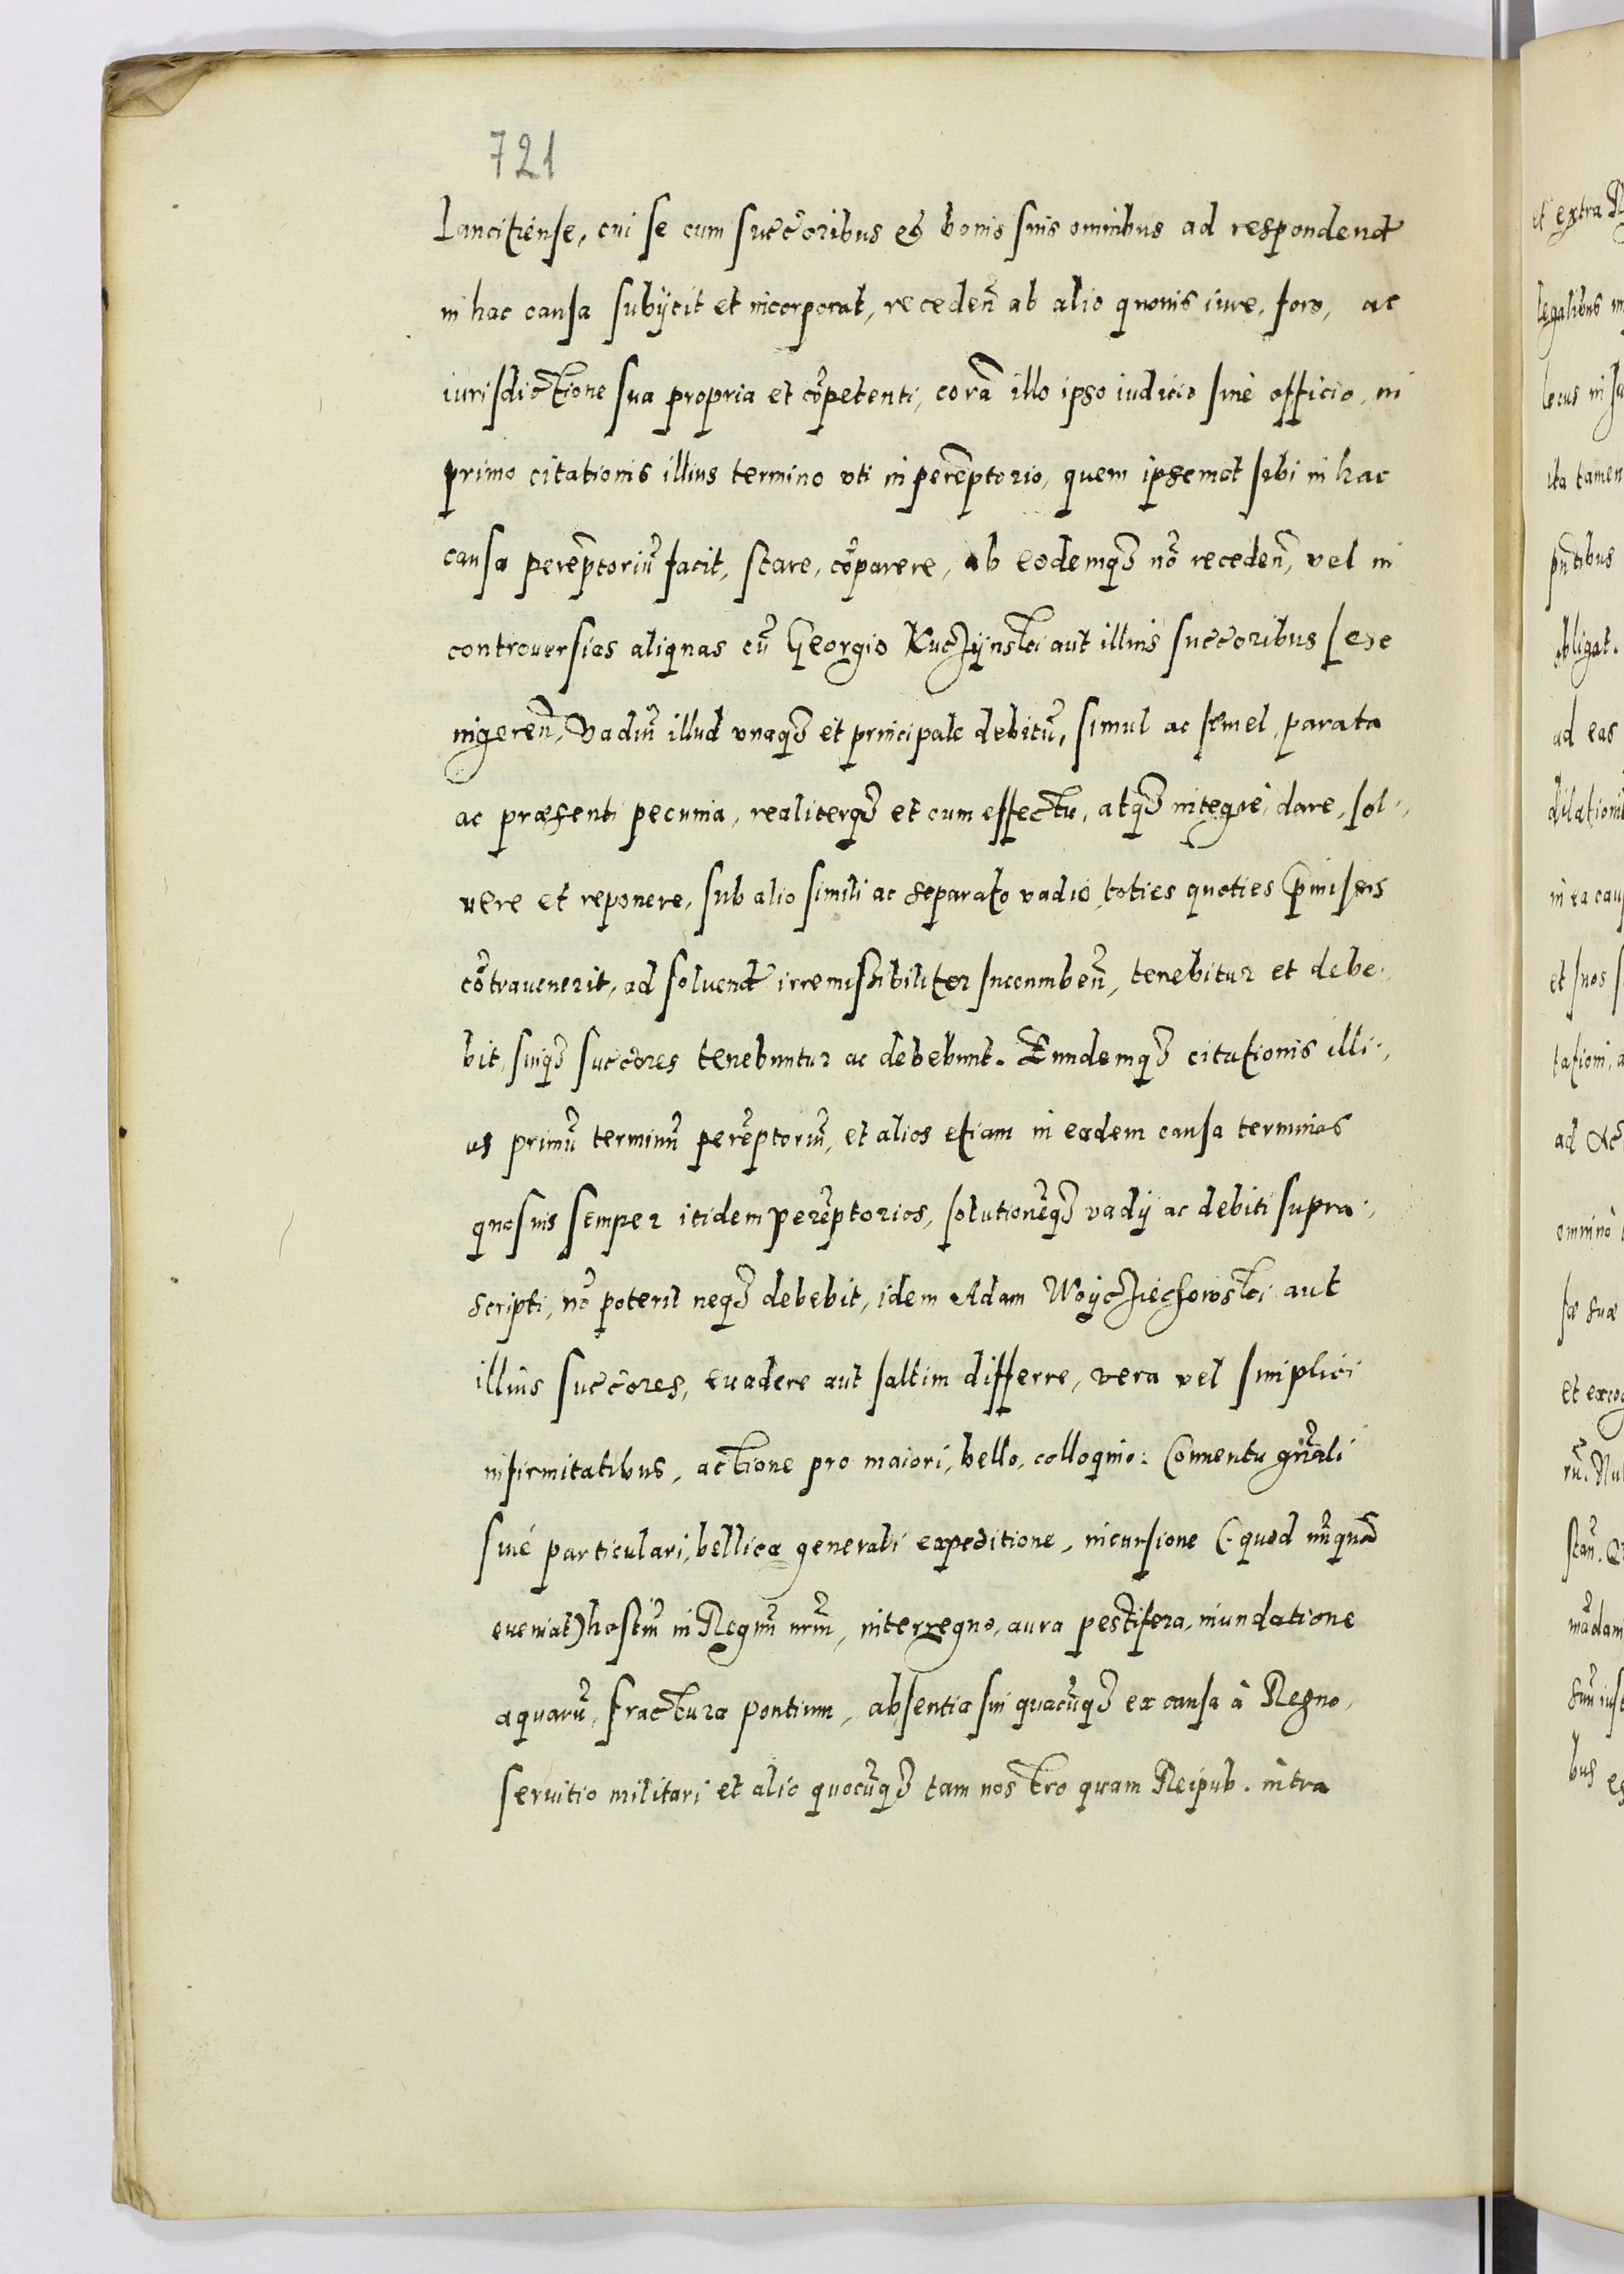 721
Lancitiense, cui se cum succ̃oribus et bonis suis omnibus ad respondend
in hac causa subijcit et incorporat, receden̄ ab alio quouis iure, foro, ac
iurisdictione sua propria et cõpetenti, corã illo ipso iudicio siuè officio, in
primo citationis illius termino vti in perẽptorio, quem ipsemet sibi in hac
causa perẽptoriũ facit, stare, cõparere, ab eodemq₃ nõ receden̄, vel in
controuersias aliquas cũ Georgio Kuczijnski aut illius succ̃oribus sese
ingeren̄, Vadiũ illud vnaq₃ et principale debitũ, simul ac semel, parata
ac præsenti pecunia, realiterq₃ et cum effectu, atq₃ integrè, dare, sol-
uere et reponere, sub alio simili ac separato vadio, toties quoties p̄missis
cõtrauenerit, ad soluend irremissibiliter incumben̄, tenebitur et debe-
bit, suiq₃ succ̃ores tenebuntur ac debebunt. Eundemq₃ citationis illi-
us primũ terminũ perẽptoriũ, et alios etiam in eadem causa terminos
quosuis semper itidem perẽptorios, solutionẽq₃ vadij ac debiti supra-
scripti, nõ poterit neq₃ debebit, idem Adam Woijcziechowski aut
illius succ̃ores, euadere aut saltim differre, vera vel simplici
infirmitatibus, actione pro maiori, bello, colloquio: Conuentu gñali
siué particulari, bellica generali expeditione, incursione (quod nũquã
eueniat) hostiũ in Regnũ nr̃m, interregno, aura pestifera, inundatione
aquarũ, fractura pontium, absentia sui quacũq₃ ex causa à Regno,
seruitio militari et alio quocũq₃ tam nostro quam Reipub. intra